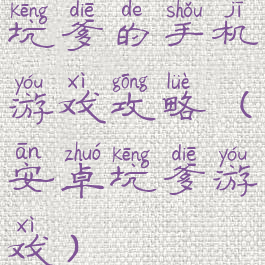 kēng diē de shǒu jī
坑爹的手机
yóu xì gōng lüè
游戏攻略（
ān zhuó kēng diē yóu
安卓坑爹游
xì
戏）